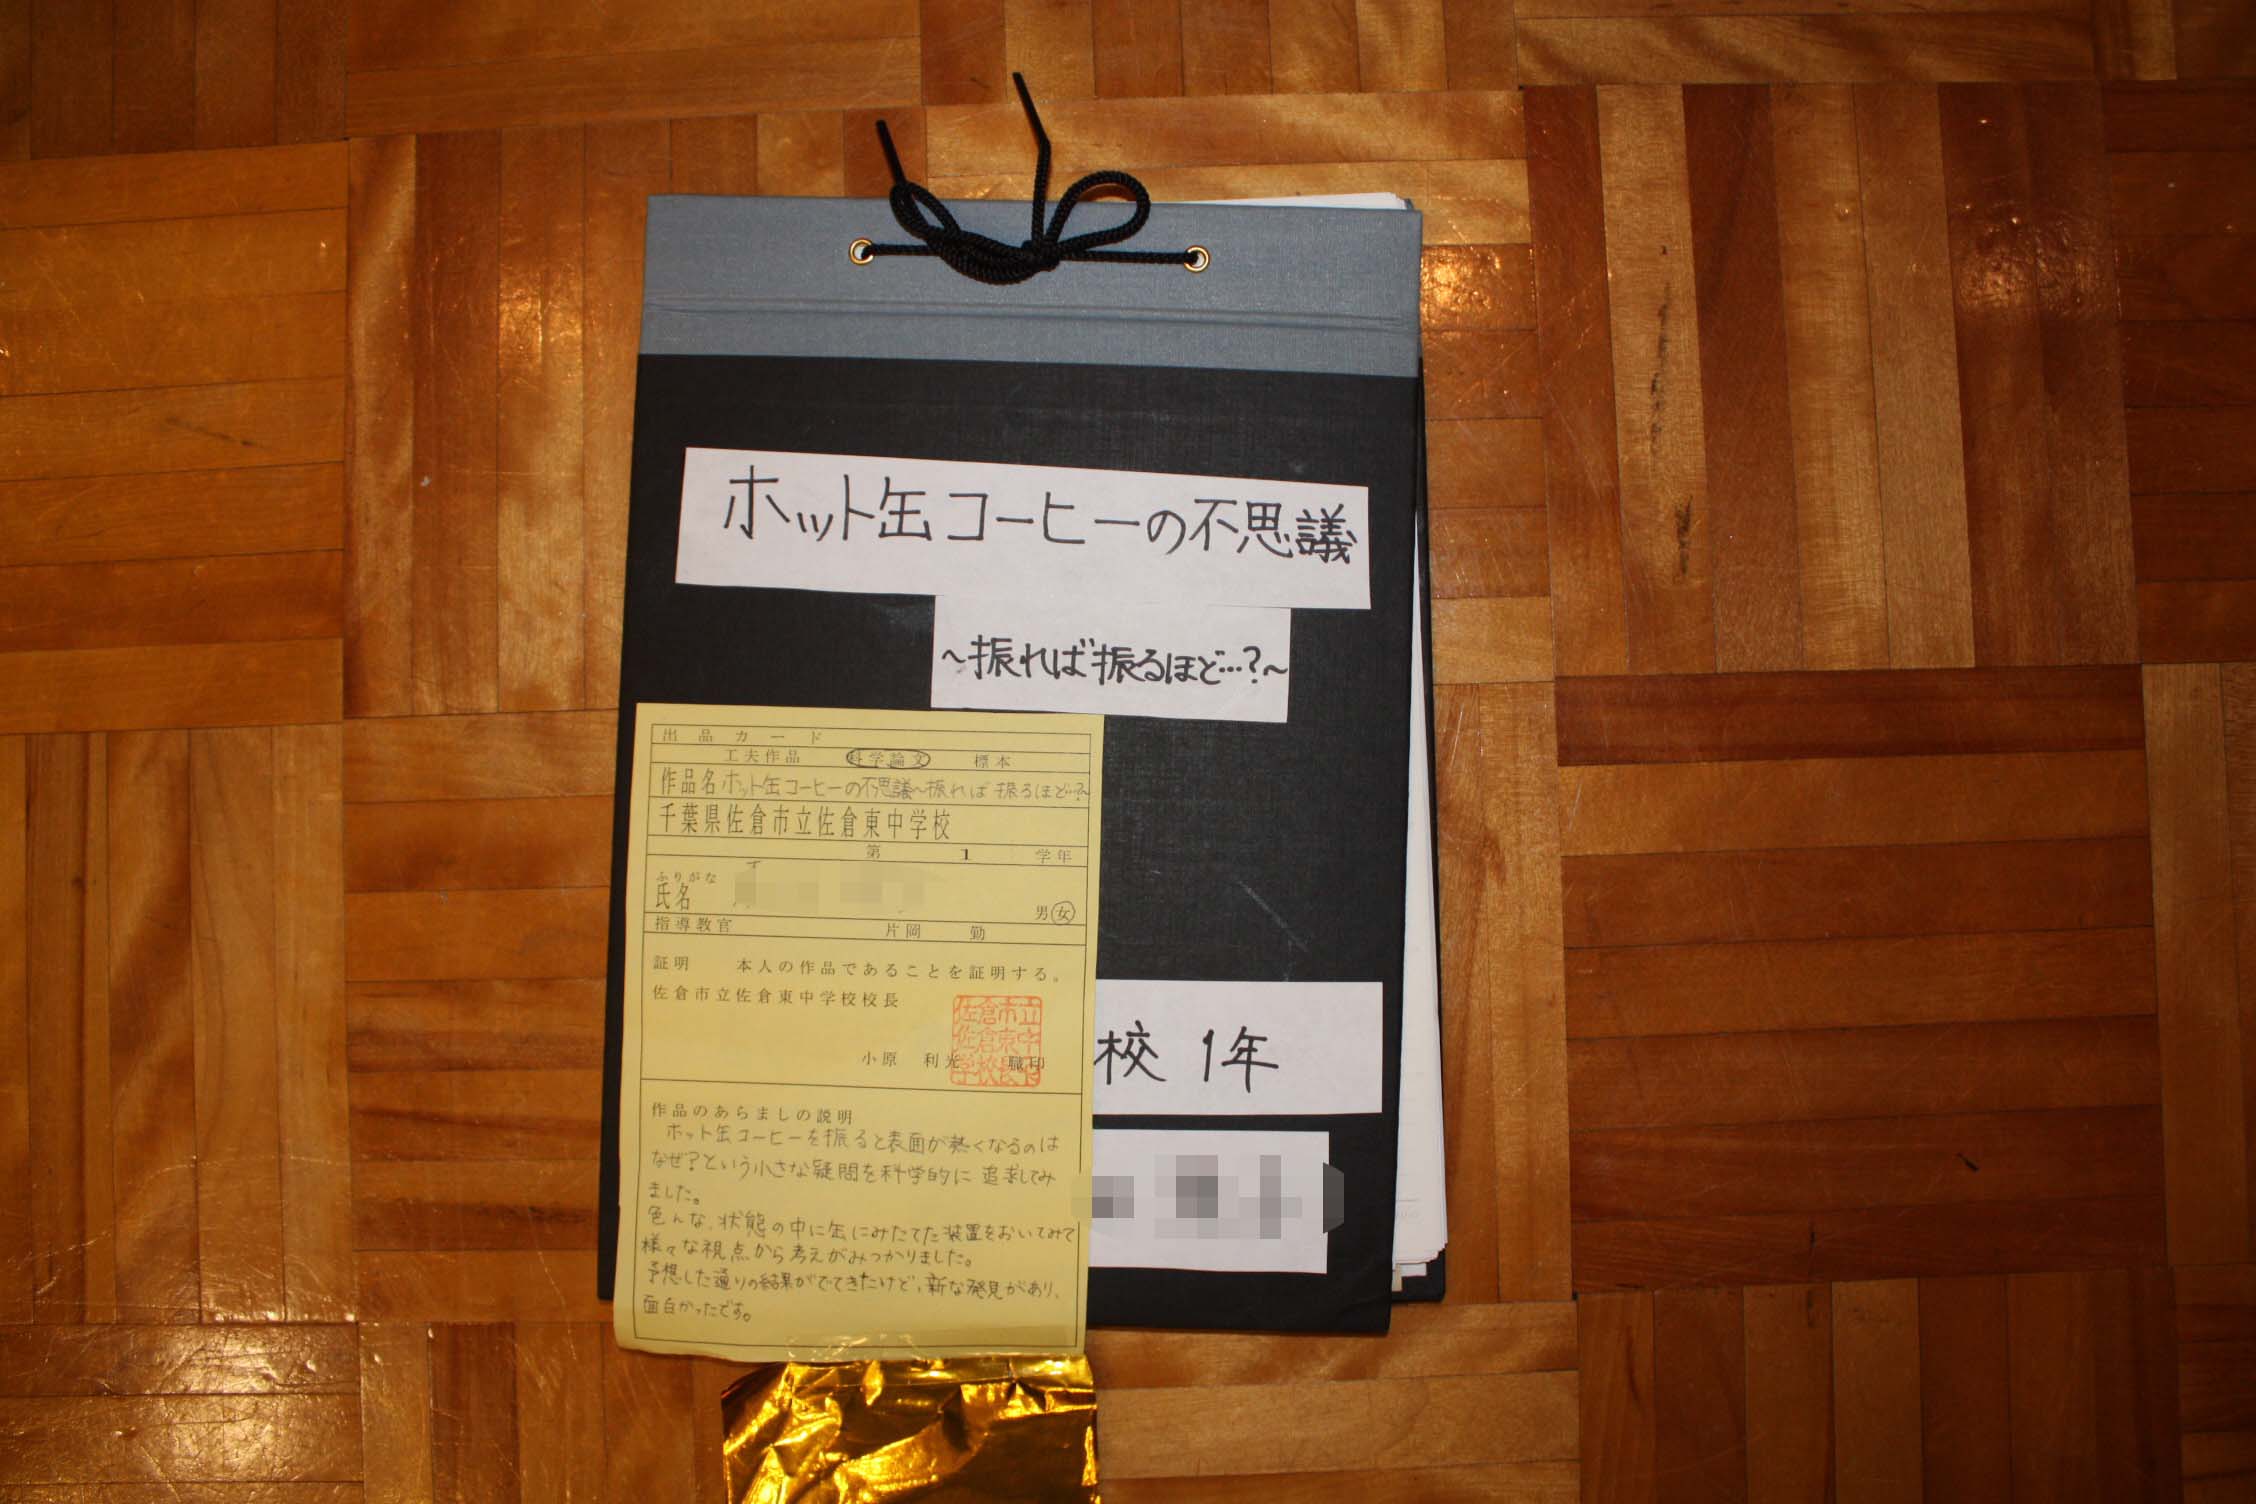 ホット缶コーヒーの不思議
～振れば振るほど…?～
出品カード
工夫作品 科学論文 標本
作品名 ホット缶コーヒーの不思議～振れば振るほど…?～
千葉県佐倉市立佐倉東中学校
第 1 学年
ふりがな
氏名
男 女
指導教官 片岡 勤
証明 本人の作品であることを証明する。
佐倉市立佐倉東中学校校長
小原 利光 職印
佐倉市立
佐倉東中
学校長印
作品のあらましの説明
ホット缶コーヒーを振ると表面が熱くなるのは
なぜ?という小さな疑問を科学的に追求してみ
ました。
色んな、状態の中に缶にみたてた装置をおいてみて
様々な視点から考えがみつかりました。
予想した通りの結果がでてきたけど、新な発見があり、
面白かったです。
校 1年